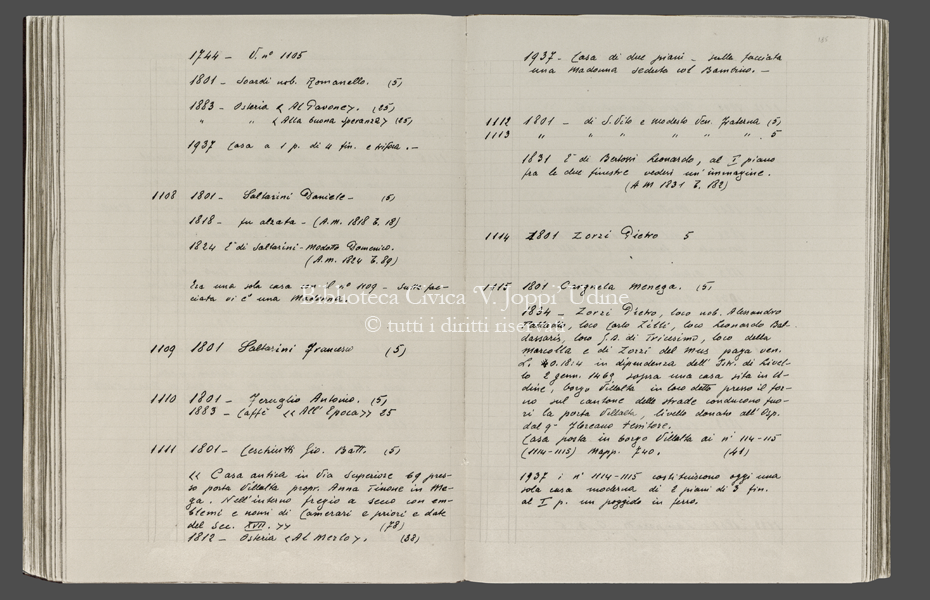 1744 - V. n° 1105
1801 - Soardi nob. Romanello. (5)
1883 - Osteria < Al Pavone>. (25)
" " < Alla buona speranza> (25)
1937 Casa a 1 p. di 4 fin. e trifora. -
1108 1801 - Saltarini Daniele - (5)
1818 - fu alzata - (A.m. 1818 E. 18)
1824 E' di Saltarini - Modotto Domenico.
(A.m. 1824 E. 89)
Era una sola casa con il n° 1109 - Sulla fac-
ciata vi è una Madonna.
1109 1801 Saltarini Francesco (5)
1110 1801 - Feruglio Antonio. (5)
1883 - Caffè << All'Epoca>> 25
1111 1801 - Ceschiutti Gio. Batt. (5)
<< Casa antica in Via Superiore 69 pres-
so porta Villalta propr. Anna Tinone in Me-
ga. Nell'interno fregio a secco con em-
blemi e nomi di Camerari e priori e date
del sec. XVII. >> (78)
1812 - Osteria <Al Merlo>. (38)
186
1937 - Casa di due piani - sulla facciata
una Madonna seduta col Bambino. -
1112 1801 - di S. Vito e Modesto Ven. Fraterna (5)
1113 " " " " " " 5
1831 E' di Bertossi Leonardo, al I piano
fra le due finestre vedesi un'immagine.
(A.M. 1831 E. 182)
1114 1801 Zorzi Pietro 5
1115 1801 Gargnela Menega. (5)
1834 - Zorzi Pietro, loco nob. Alessandro
loco Carlo Zilli, loco Leonardo Bal-
dassaris, loco G.B. di Tricesimo, loco della
Marcolla e di Zorzi del Mus paga ven.
L. 40.18:4 in dipendenza dell' Istr. di Livel-
lo 2 genn. 1469 sopra una casa sita in U-
dine, borgo Villalta in loco detto presso il for-
no sul cantone delle strade conducono fuo-
ri la porta Villalta, livello donato all'Osp.
dal q™ Floreano tentitore.
Casa posta in borgo Villalta ai n' 114-115
(1114-1115) Mapp. 740. (41)
1937 i n' 1114-1115 costituiscono oggi una
sola casa moderna di 2 piani di 3 fin.
al I p. un poggiolo in ferro.
Biblioteca Civica "V. Joppi" Udine
© tutti i diritti riservati